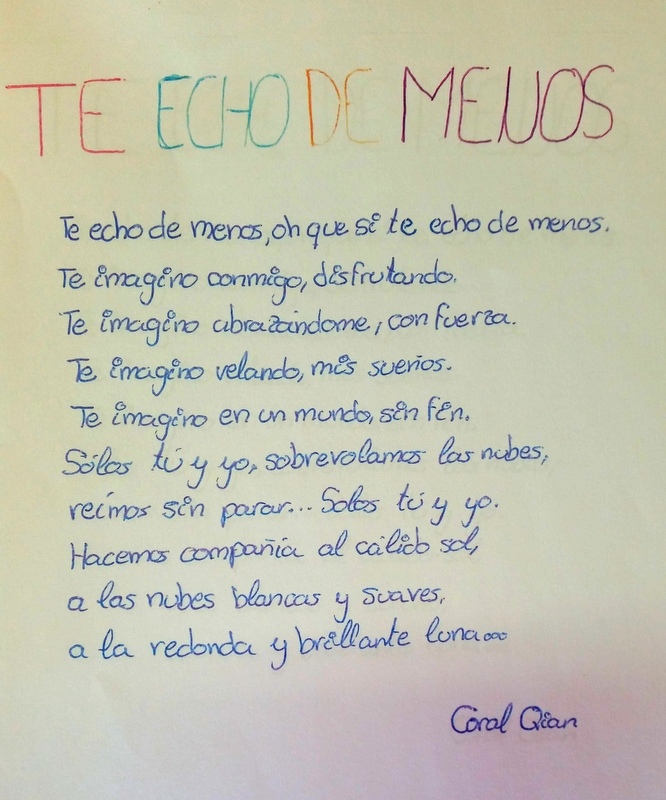 TE ECHO DE MENOS
Te echo de menos, oh que si te echo de menos.
Te imagino conmigo, disfrutando.
Te imagino abrazándome, con fuerza.
Te imagino velando, mis sueños.
Te imagino en un mundo, sin fin.
Sólos tú y yo, sobrevolamos las nubes,
reímos sin parar... Solos tú y yo.
Hacemos compañía al cálido sol,
a las nubes blancas y suaves,
a la redonda y brillante luna...
Coral Qian